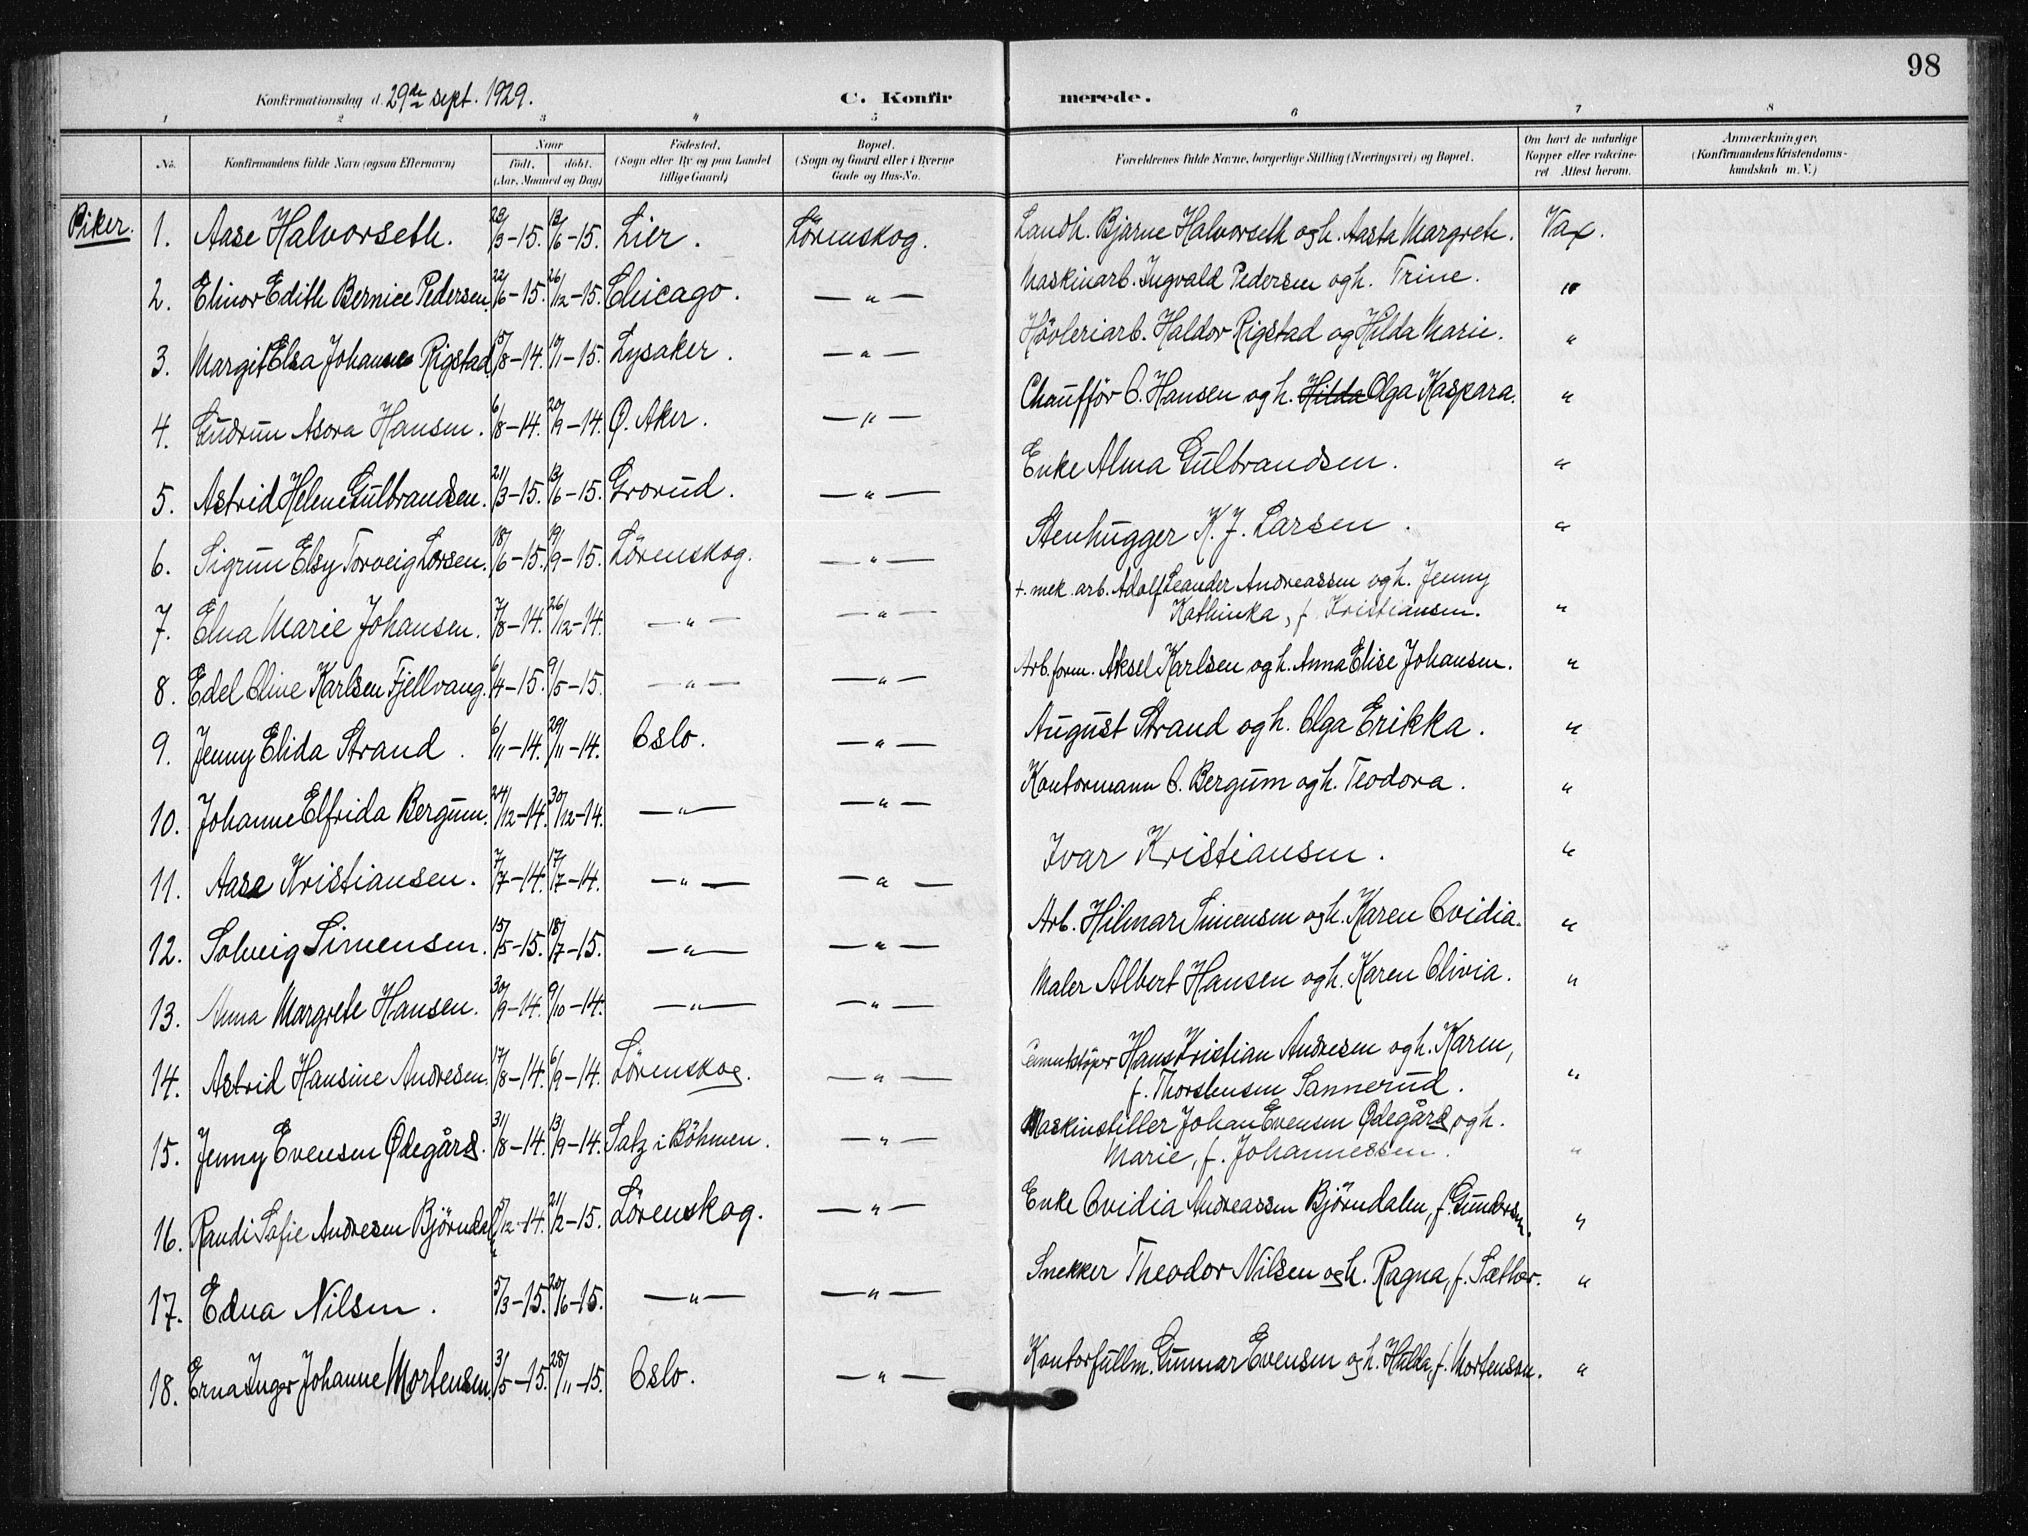 98
Konfirmationsdag d. 29de sept. 1929. C. Konfir merede.
1 2 3 4 5 6 7 8
No. Konfirmandens fulde Navn (ogsaa Efternavn) Naar født. døbt. (Aar, Maaned og Dag) Fødested. (Sogn eller By og paa Landet tillige Gaard) Bopæl. (Sogn og Gaard eller i Byerne Gade og Hus-No. Forældrenes fulde Navne, borgerlige Stilling (Næringsvei) og Bopæl. Om havt de naturlige Kopper eller vakcineret. Attest herom. Anmærkninger, (Konfirmandens Kristendomskundskab m. V.)
Piker.
1. Aase Halvorseth. 23/3-15. 13/6-15. Lier. Lørenskog. Landh. Bjarne Halvorseth og h. Aasta Margrete. Vax.
2. Elinor Edith Bernice Pedersen. 22/6-15. 26/12-15. Chicago. —"— Maskinarb. Ingvald Pedersen og h. Trine. "
3. Margit Elsa Johanne Rigstad. 15/8-14. 10/1-15. Lysaker. —"— Høvleriarb. Haldor Rigstad og Hilda Marie. "
4. Gudrun Asora Hansen. 6/8-14. 20/9-14. Ø. Aker. —"— Chauffør O. Hansen og h. Hilda Olga Kaspara. "
5. Astrid Helene Gulbrandsen. 21/3-15. 13/6-15. Grorud. —"— Enke Alma Gulbrandsen. "
6. Sigrun Elsy Torveig Larsen. 18/6-15. 19/9-15. Lørenskog. —"— Stenhugger K. J. Larsen. "
7. Elna Marie Johansen. 7/8-14. 26/12-14. —"— —"— +. mek. arb. Adolf Leander Andreassen og h. Jenny
Kathinka, f. Kristiansen. "
8. Edel Oline Karlsen Fjellvang. 6/4-15. 9/5-15. —"— —"— Arb.form. Aksel Karlsen og h. Anna Elise Johansen. "
9. Jenny Elida Strand. 6/11-14. 29/11-14. Oslo. —"— August Strand og h. Olga Erikka. "
10. Johanne Elfrida Bergum. 24/12-14. 30/12-14. —"— —"— Kontormann O. Bergum og h. Teodora. "
11. Aase Kristiansen. 7/7-14. 17/7-14. —"— —"— Ivar Kristiansen. "
12. Solveig Simensen. 15/5-15. 18/7-15. —"— —"— Arb. Hilmar Simensen og h. Karen Ovidia. "
13. Anna Margrete Hansen. 30/9-14. 9/10-14. —"— —"— Maler Albert Hansen og h. Karen Olivia. "
14. Astrid Hansine Andresen. 17/8-14. 6/9-14. Lørenskog. —"— Cementstøper Hans Kristian Andresen og h. Karen,
f. Thorstensen Sannerud. "
15. Jenny Evensen Ødegård. 31/8-14. 13/9-14. Satz i Böhmen. —"— Maskinstiller Johan Evensen Ødegård og h.
Marie, f. Johannessen. "
16. Randi Sofie Andresen Bjørndal 5/12-14. 21/2-15. Lørenskog. —"— Enke Ovidia Andreassen Bjørndalen, f. Gundersen. "
17. Edna Nilsen. 5/3-15. 20/6-15. —"— —"— Snekker Theodor Nilsen og h. Ragna, f. Sæther. "
18. Erna Inger Johanne Mortensen. 3/5-15. 28/11-15. Oslo. —"— Kontorfullm. Gunnar Evensen og h. Hulda, f. Mortenson. "